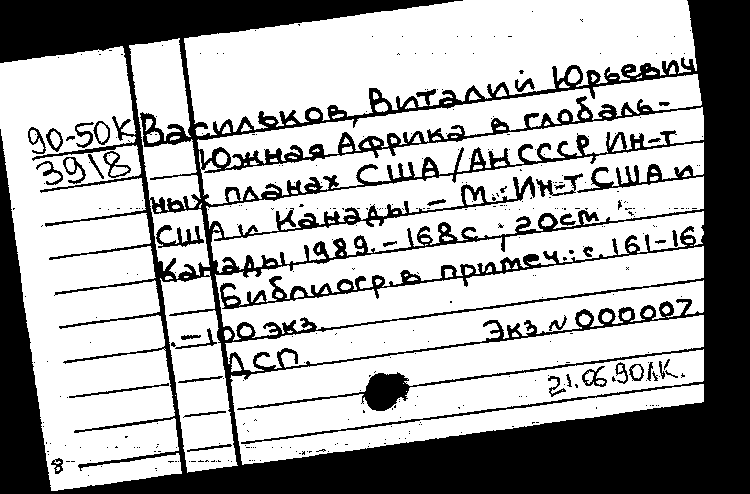 90-50К Васильков, Виталий Юрьевич
3918 Южная Африка в глобаль-
ных планах США /АН СССР, Ин-т
США и Канады. - М.: Ин-т США и
Канады, 1989. - 168 с. ; 20 см.
Библиогр. в примеч.: с. 161-168
. - 100 экз. Экз. N 000007.
ДСП.
21.06.90 Л.К.
8